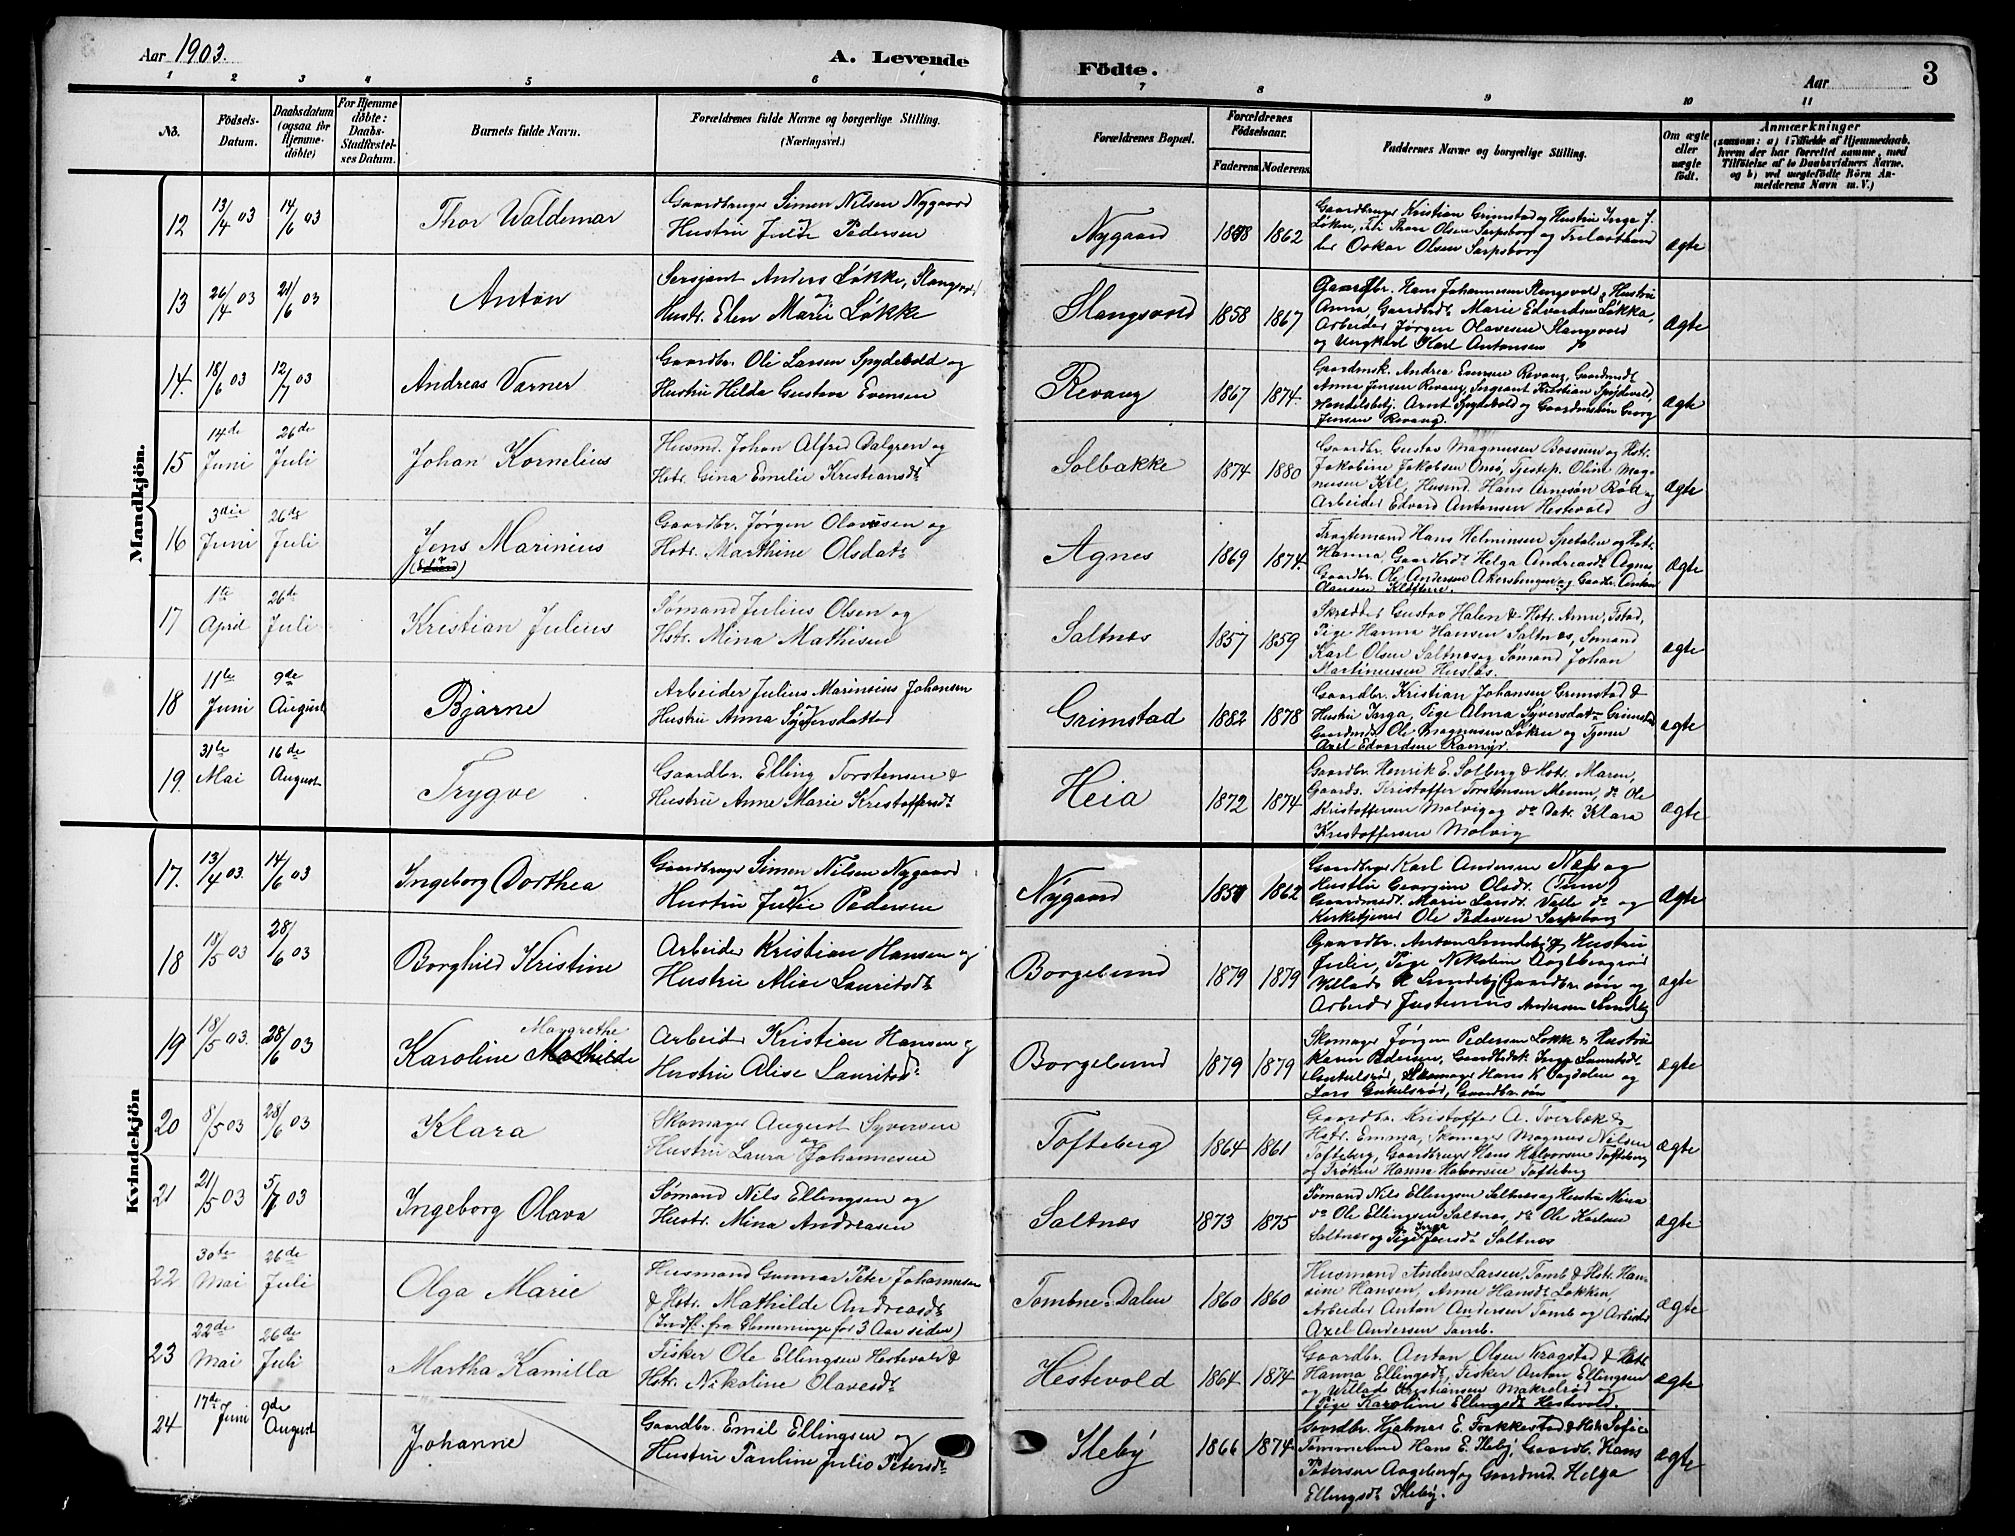 Aar 1903.
A. Levende Födte.
Aar
3
1 2 3 4 5 6 7 8 9 10 11
No.
Födsels-Datum.
Daabsdatum (ogsaa for Hjemme-döbte)
For Hjemme döbte: Daabs-Stadfæstel-ses Datum.
Barnets fulde Navn.
Forældrenes fulde Navne og borgerlige Stilling. (Næringsvei.)
Forældrenes Bopæl.
Forældrenes Födselsaar.
Faderens Moderens
Faddernes Navne og borgerlige Stilling.
Om ægte eller uægte födt.
Anmærkninger
(saasom: a) i Tilfælde af Hjemmedaab,
hvem der har forrettet samme, med
Tilföielse af to Daabsvidners Navne.
og b) ved uægtefödte Börn An-
melderens Navn m. V.)
Mandkjön.
12 13/4 03 14/6 03 Thor Waldemar
Gaardbruger Simen Nilsen Nygaard
Hustru Julie Pedersen
Nygaard 1862
Gaardbruger Kristian Grimstad og Hustru Inga J.
Løken, Thora Olsen Sarpsborg og Trelasthand
ler Oskar Olsen Sarpsborg
ægte
13 26/4 03 21/6 03 Anton
Sersjant Anders Løkke, Slangsvold
Hustr. Elen Marie Løkke
Slangsvold 1858 1867
Gaardbr. Hans Johannesen Slangsvold & Hustru
Anna, Gaardbdt. Marie Edvardsen Løkka,
Arbeider Jørgen Olavesen Slangsvold
og Ungkarl Karl Antonsen
ægte
14. 18/6 03 12/7 03 Andreas Varner
Gaardbr. Ole Larsen Spydevold og
Hustru Hilda Gustava Evensen
Revaug 1867 1874.
Gaardensk. Andrea Evensen Revaug, Gaardmdt
Anna Jensen Revaug, Sergeant Kristian Spydevold,
Handelsbetj. Arnt Spydevold og Gaardmsøn Georg
Jensen Revaug.
ægte
15 14de Juni 26de Juli Johan Kornelius
Husmd. Johan Alfred Dalgren og
Hstr. Gina Emilie Kristiansdt
Solbakke 1874 1880
Gaardbr. Gustav Magnusen Bossum og Hstr.
Jakobine Jakobsen Omø, Tjestep. Oline Mag-
nusen Krl, Husmd. Hans Arnesøn Rød og
Arbeider Edvard Antonsen Hestevold
ægte
16 3die Juni 26de Juli Jens Marinius
Gaardbr. Jørgen Olavesen og
Hstr. Marthine Olsdatr
Agnes 1869 1874.
Fragtemand Hans Helminsen Spetalen og Hstr.
Hanna, Gaardbrdt Helga Andreasdt Agnes
Gaardbr. Ole Andersen Akersbergen og Gaardbr. Anton
Olausen Kløftene.
ægte
17 1te April 26de Juli Kristian Julius
Sømand Julius Olsen og
Hstr. Mina Mathisen
Saltnes 1857 1859
Skrædder Gustav Halen & Hstr. Anne, Istad,
Pige Hanna Hansen Saltnes, Sømand
Karl Olsen Saltnes og Sømand Johan
Martinussen Husløs.
ægte
18 11te Juni 9de August Bjarne
Arbeider Julius Marinsius Johansen
Hustru Anna Syversdatter
Grimstad 1882 1878
Gaardbr. Kristian Johansen Grimstad &
Hustru Inga, Pige Alma Syversdatr Grimstad
Gaardmdt. Ole Magnussen Løken og Tjener
Axel Edvardsen Ramyr.
ægte
19. 31te Mai 16de August Trygve
Gaardbr. Elling Torstensen &
Hustru Anne Marie Kristoffersdt
Heia 1872 1874
Gaardbr. Henrik E. Solberg & Hstr. Maren,
Gaards. Kristoffer Torstensen Menne, do Ole
Kristoffersen Molvig og do Datr. Klara
Kristoffersen Molvig
ægte
Kvindekjön
17. 13/4 03. 14/6 03 Ingeborg Dorthea
Gaardbruger Simen Nilsen Nygaard
Hustru Julie Pedersen
Nygaard 1862
Gaardbrgr Karl Andersen Næs og
Hustru Georgine Olsdt. (Tune)
Gaardmsdt. Marie Larsdt. Valle do og
Kirketjener Ole Pedersen Sarpsborg
ægte
18 10/5 03 28/6 03 Borghild Kristine
Arbeider Kristian Hansen og
Hustru Alise Lauritsdt
Borgelund 1879 1879
Gaardbr. Anton Lundeby og Hustru
Julie, Pige Nikoline
Villads R Lundeby (Gaardbr. søn og
Arbeider Justenius Andersen Lundeby
ægte
19 18/5 03. 28/6 03 Karoline Mathilde Margrethe
Arbeider Kristian Hansen og
Hustru Alise Lauritsdt
Borgelund 1879 1879
Skomager Jørgen Pedersen Løkke & Hustru
Karen Pedersen, Gaardbdt. Inga Lauritsdt.
Gunkelsrød, Skomager Hans K Dagdalen og
Lars Gunkelsrød, Gaardbr. søn
ægte
20 8/5 03 28/6 03 Klara
Skomager August Syversen
Hustru Laura Johannesen
Tofteberg 1864 1861
Gaardbr. Kristoffer A. Tverbek &
Hstr. Emma, Skomager Magnus Nilsen
Tofteberg, Gaardbruger Hans Halvorsen Tofteberg
og Frøken Hanna Halvorsen Tofteberg
ægte
21 21/5 03 5/7 03 Ingeborg Olava
Sømand Nils Ellingsen og
Hustr. Mina Andreasen
Saltnes 1873 1875
Sømand Nils Ellingsen Saltnes og Hustru Mina
do Ole Ellingsen Saltnes, do Ole Karlsen
Saltnes og Pige Inga Jensdt. Saltnes
ægte
22 30te Mai 26de Juli Olga Marie
Husmand Gunnar Peter Johannesen
& Hstr. Mathilde Andreasdt
(Indfl. fra Glemminge for 3 Aar siden)
Tombne-Dalen 1860 1860
Husmand Anders Larsen, Tomb & Hstr. Han-
sine Hansen, Anne Hansdt Løkken,
Arbeider Anton Andersen Tomb og Arbeider
Axel Andersen Tomb.
ægte
23 22de Mai 26de Juli Martha Kamilla
Fisker Ole Ellingsen Hestevold &
Hstr. Nikoline Olavesdt
Hestevold 1864 1874
Gaardbr. Anton Olsen Kragstad & Hstr
Hanna Ellingsdt, Fisker Anton Ellingsen
og Willads Kristiansen Makrelrød og
Pige Karoline Ellingsdt Hestevold.
ægte
24 17de Juni 9de August Johanne
Gaardbr. Emil Ellingsen og
Hustru Pauline Julie Petersdt
Ileby 1866 1874
Gaardbr. Hjalmar E. Frakkestad & Hstr Sofie
Tømmerlund Hans E. Ileby Gaardb. Hans
Petersen Aageberg og Gaardmd. Helga
Ellingsdt Ileby.
ægte